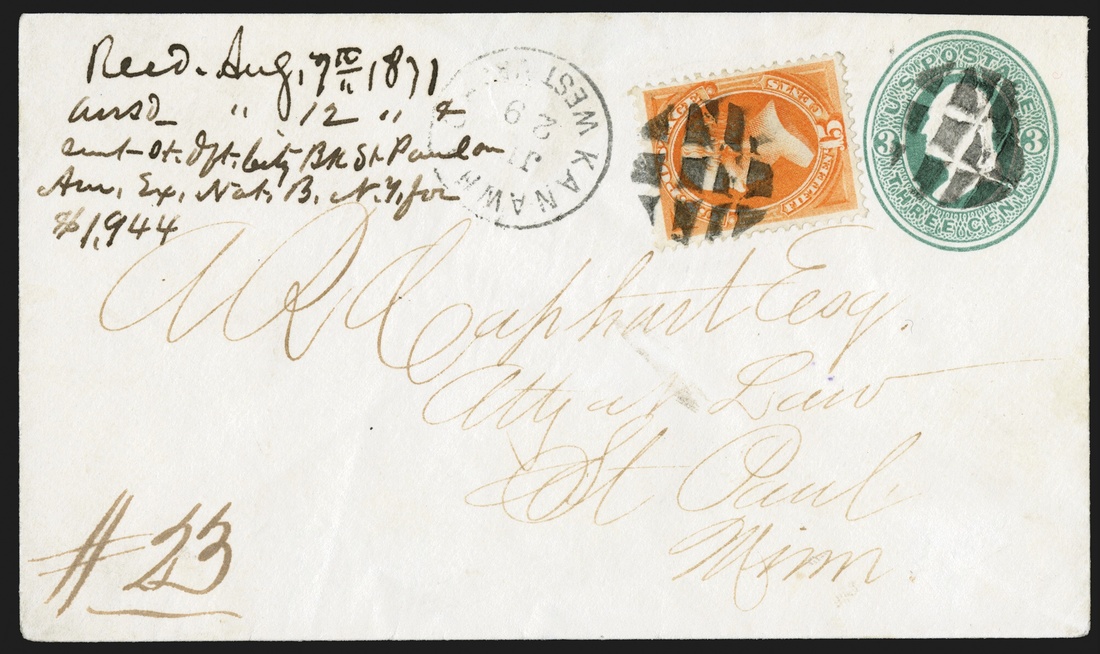 Recd. Aug, 7th, 1871
ansd " 12 " &
sent St. Dft. City Bk St. Paul on
Am, Ex, Nat, B, N.Y, for
$1,944
KANAWH WEST VA
29
U.S. POSTAGE
15
FIFTEEN CENTS
US POSTAGE
3 3
THREE CENTS
A R Capehart Esq.
Atty at Law
St Paul
Minn.
# 23